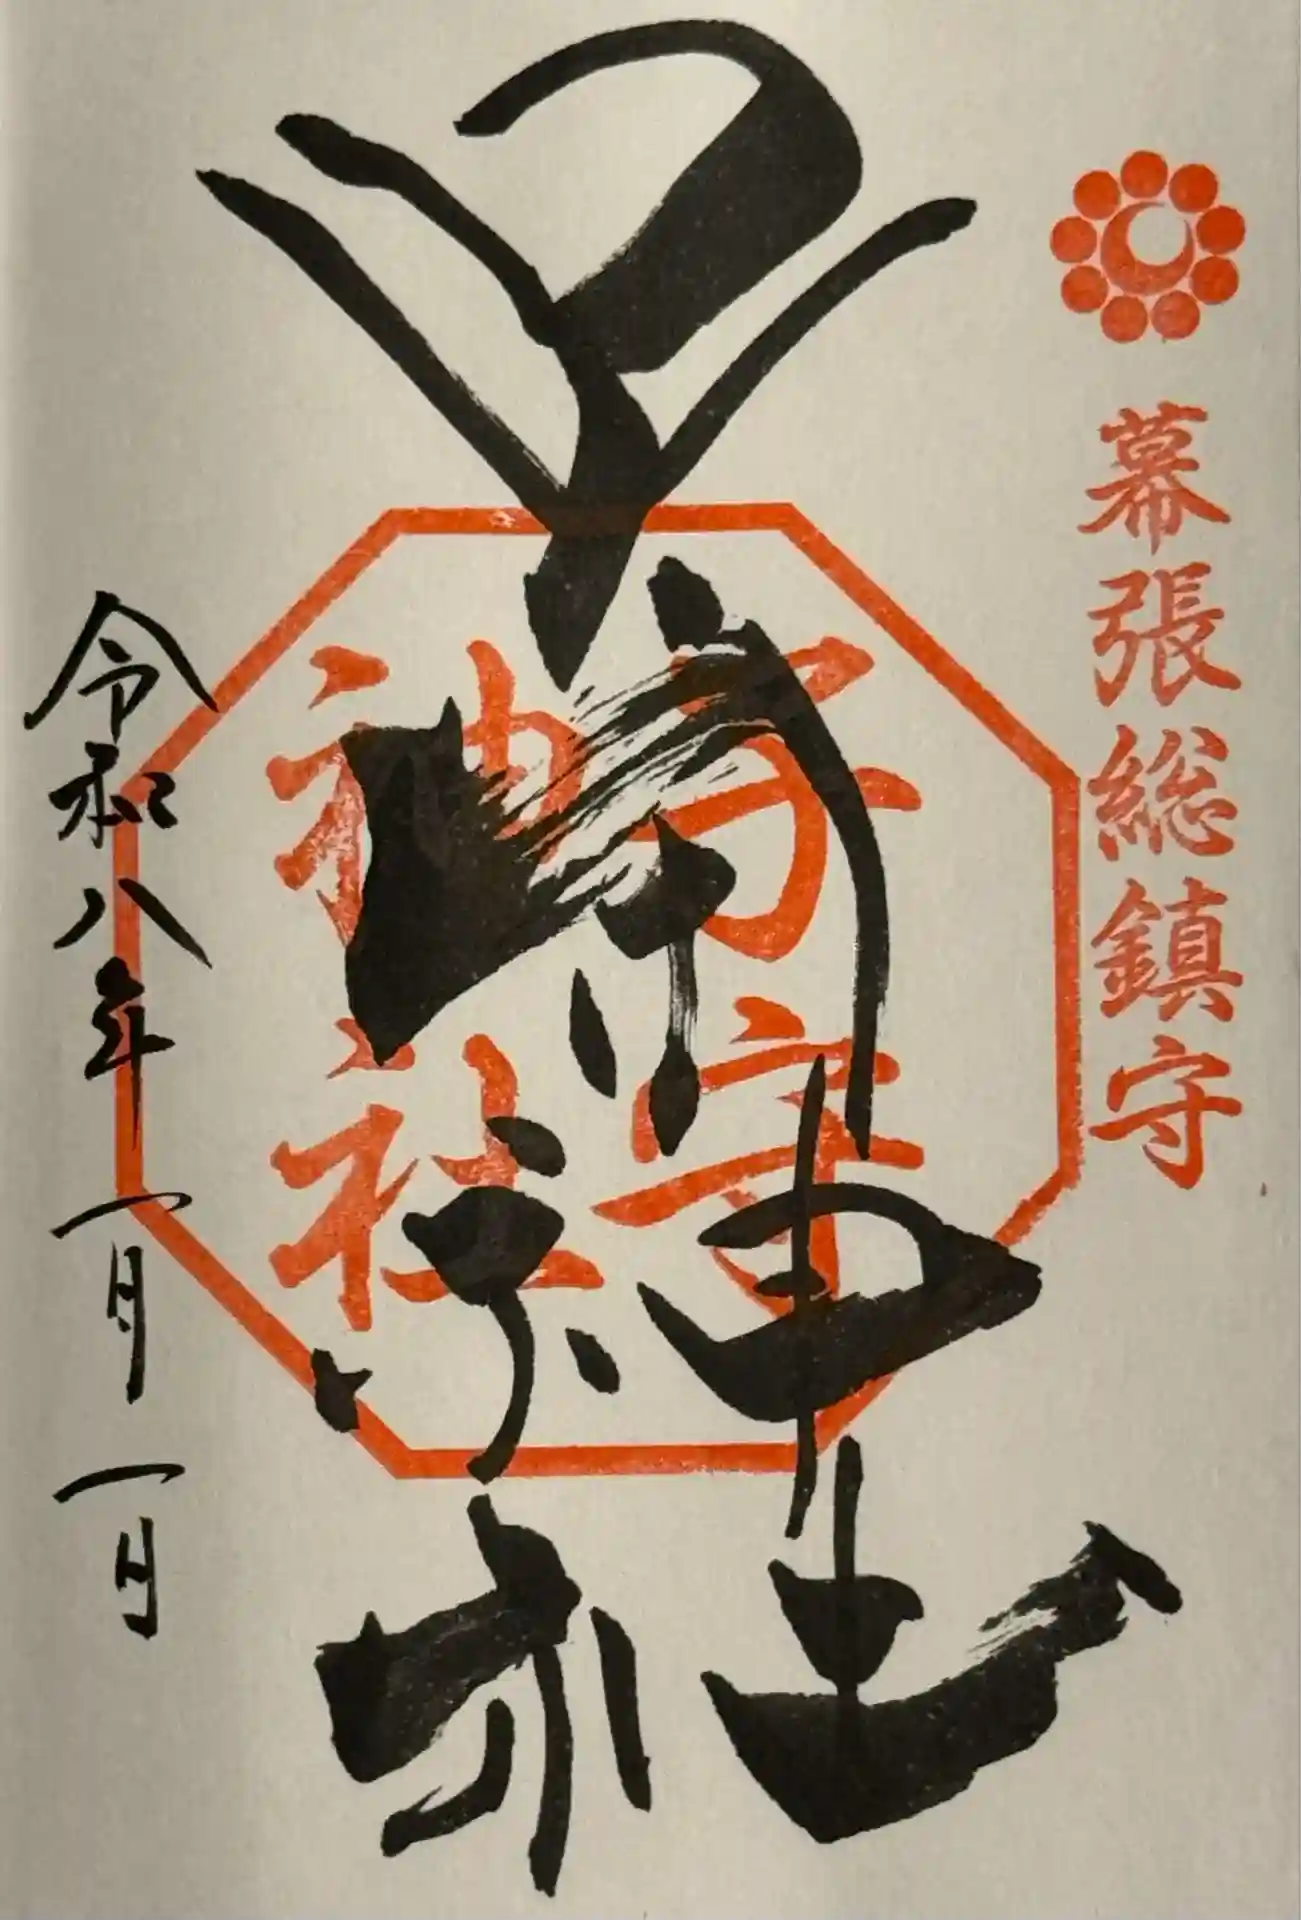 幕張総鎮守
子守神社
子守
神社
令和八年一月一日